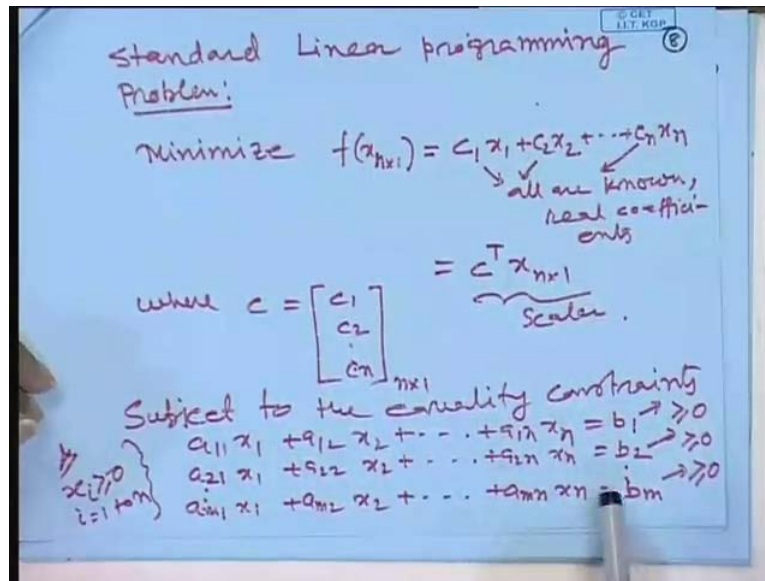 © CET
I.I.T. KGP
8
Standard Linear programming
Problem:
Minimize f(x_{n×1}) = c₁x₁ + c₂x₂ + ··· + cₙxₙ
all are known,
real coeffici-
ents
= cᵀ x_{n×1}
Scalar.
where c = [c₁ c₂ . cₙ]_{n×1}
Subject to the equality constraints
a₁₁ x₁ + a₁₂ x₂ + - - · + a₁ₙ xₙ = b₁ → ≥0
a₂₁ x₁ + a₂₂ x₂ + · - · + a₂ₙ xₙ = b₂ → ≥0
aₘ₁ x₁ + aₘ₂ x₂ + - · · + aₘₙ xₙ = bₘ → ≥0
xᵢ ≥ 0
i = 1 to n